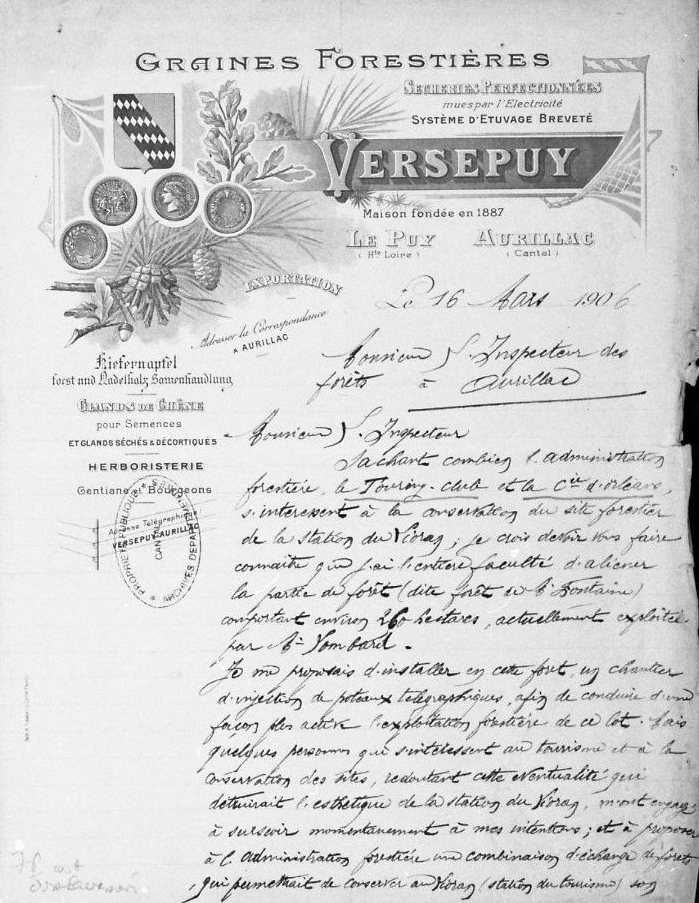 GRAINES FORESTIÈRES
SÉCHERIES PERFECTIONNÉES
mues par l'Electricité
SYSTÈME D'ETUVAGE BREVETÉ
VERSEPUY
Maison fondée en 1887
LE PUY AURILLAC
(Hte Loire) (Cantal)
EXPORTATION
Adresser la Correspondance
A AURILLAC
Kiefernapfel
forst und Nadelholz Samenhandlung
GLANDS DE CHÊNE
pour Semences
ET GLANDS SÉCHÉS & DÉCORTIQUÉS
HERBORISTERIE
Gentiane et Bourgeons
Adresse Télégraphique
VERSEPUY-AURILLAC
PROPRIETE PUBLIQUE
ARCHIVES DEPARTEM
CANTAL
Le 16 Mars 1906
Monsieur l'Inspecteur des
forêts à Aurillac
Monsieur l'Inspecteur
Sachant combien l'administration
forestière, le Touring-club et la Cie d'orléans,
s'interessent à la conservation du site forestier
de la station du Lioran; je crois devoir vous faire
connaitre que j'ai l'entière faculté d'aliener
la partie de forêt (dite forêt de
comportant environ 260 hectares, actuellement exploitée
par Mr Lombard.
Je me proposais d'installer en cette forêt, un chantier
d'injection de poteaux télégraphiques, afin de conduire d'une
façon plus active l'exploitation forestière de ce lot. Mais
quelques personnes qui s'intéressent au tourisme et à la
conservation des sites, redoutant cette éventualité qui
détruirait l'esthétique de la station du Lioran, m'ont engagé
à surseoir momentanement à mes intentions; et à proposer
à l'administration forestière une combinaison d'échange de forêts
qui permettrait de conserver au Lioran (station du tourisme) son